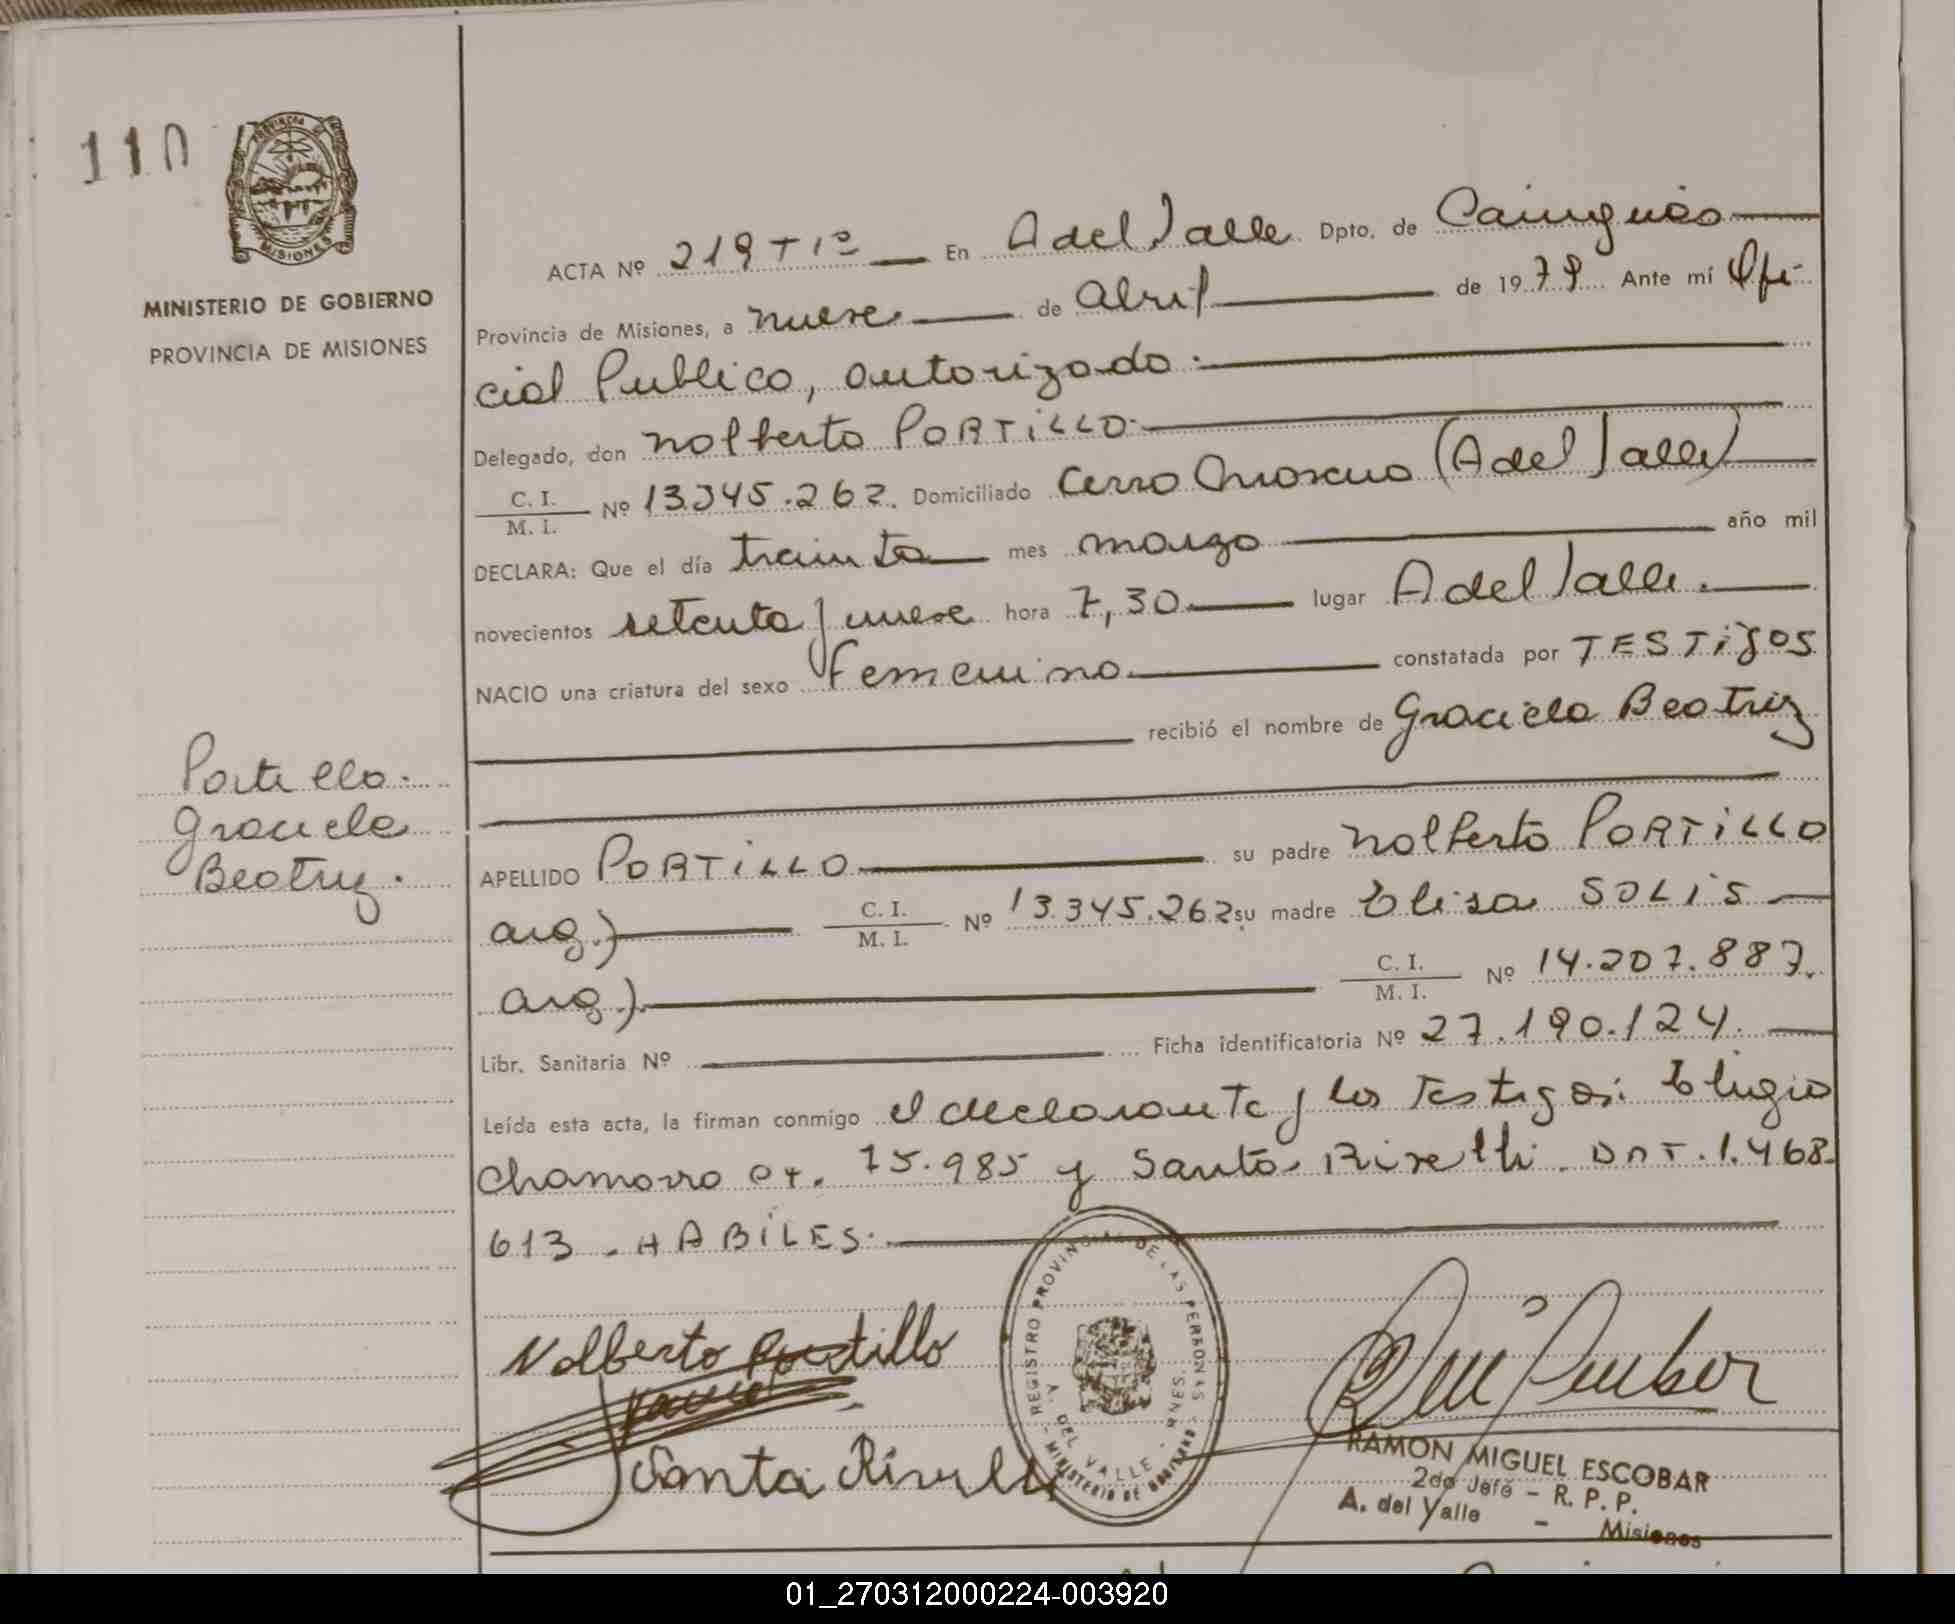 110
PROVINCIA DE
MISIONES
MINISTERIO DE GOBIERNO
PROVINCIA DE MISIONES
ACTA Nº 219 T 1º En A del Valle Dpto. de Cainguás
Provincia de Misiones, a nueve de abril de 1979 Ante mí Ofi-
cial Publico, autorizado.
Delegado, don Nolberto PORTILLO.
C. I.
M. I. Nº 13.345.262. Domiciliado Cerro Moreno (A del Valle)
DECLARA: Que el día trainta mes marzo año mil
novecientos setenta y nueve hora 7,30 lugar A del Valle.
NACIO una criatura del sexo femenino. constatada por TESTigos
recibió el nombre de Graciela Beatriz
Portillo.
Graciela
Beatriz.
APELLIDO PORTiLLO su padre Nolberto PORTiLLO
arg.) C. I.
M. I. Nº 13.345.262 su madre Elisa SOLiS
arg.). C. I.
M. I. Nº 14.207.887.
Libr. Sanitaria Nº Ficha identificatoria Nº 27.190.124.
Leída esta acta, la firman conmigo el declarante y los Testigos: Eligio
Chamorro et. 75.985 y Santo Rivelli. DNT. 1.468.
613 - HABiLES.
Nolberto Portillo
REGISTRO PROVINCIAL DE LAS PERSONAS
A. DEL VALLE - MNES.
MINISTERIO DE GOBIERNO
RAMON MIGUEL ESCOBAR
2do Jefe - R. P. P.
A. del Valle - Misiones
01_270312000224-003920